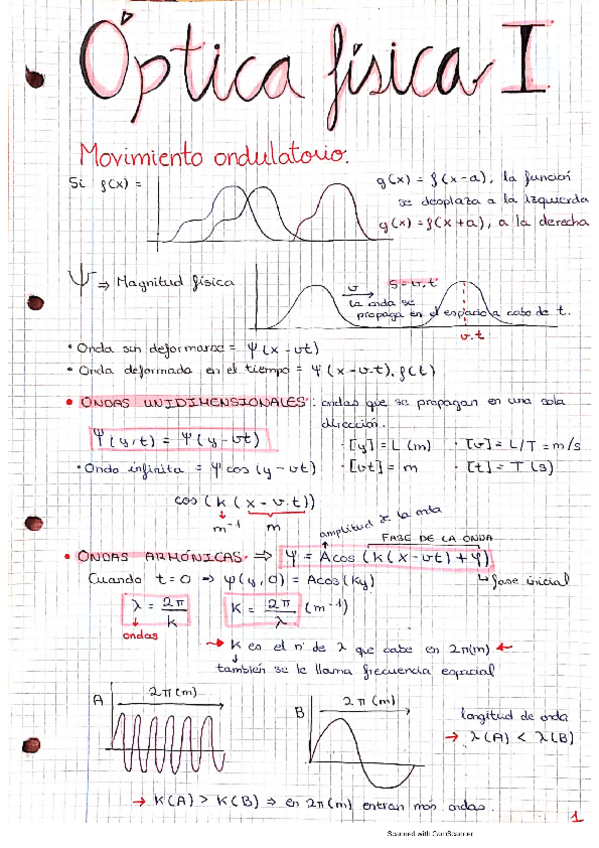 Óptica física I
Movimiento ondulatorio:
Si f(x) =
g(x) = f(x-a), la función
se desplaza a la izquierda
g(x) = f(x+a), a la derecha
Ψ ⇒ Magnitud física
v
S = v.t
la onda se
propaga en el espacio a cabo de t.
v.t
• Onda sin deformarse = Ψ(x-vt)
• Onda deformada en el tiempo = Ψ(x-v.t).f(t)
• ONDAS UNIDIMENSIONALES: ondas que se propagan en una sola
dirección.
Ψ(y,t) = Ψ(y-vt)
· [y] = L (m) · [v] = L/T = m/s
• Onda infinita = Ψ cos(y-vt) · [vt] = m · [t] = T (s)
cos(k(x-v.t))
m⁻¹ m
amplitud de la onda
FASE DE LA ONDA
• ONDAS ARMÓNICAS ⇒ Ψ = Acos(k(x-vt)+φ)
Cuando t=0 ⇒ φ(y,0) = Acos(ky)
fase inicial
λ = 2π/k K = 2π/λ (m⁻¹)
ondas
→ K es el nº de λ que cabe en 2π(m) ←
también se le llama frecuencia espacial
A 2π(m)
B 2π(m)
longitud de onda
→ λ(A) < λ(B)
→ K(A) > K(B) ⇒ en 2π(m) entran más ondas.
1
Scanned with CamScanner